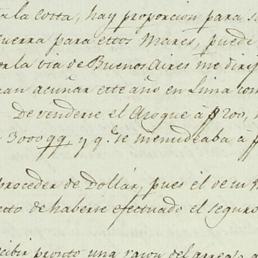 la costa, hay proporcion para s
guerra para estos Mares, puede
por la via de Buenos Aires me dirij
ran acuñar este año en Lima con
De venderse el Azogue à 200,
3000 qq y qe se menudeaba à
proceder de Dollár, pues él se
cto de haberse efectuado el seguro
cibir pronto una razon del arreglo